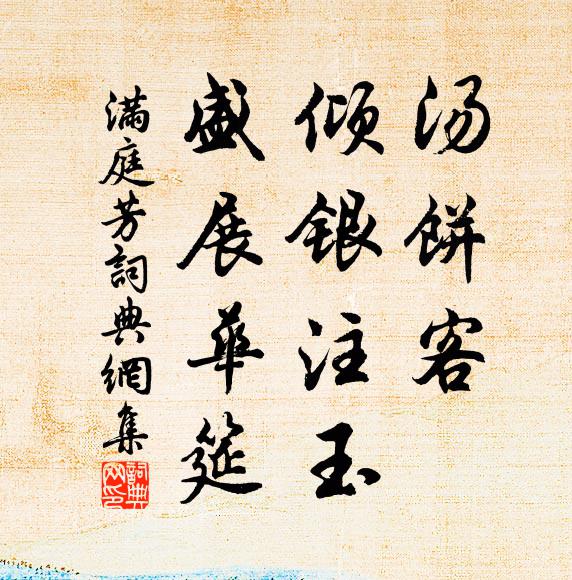 汤餅客
倾银注玉
盛展华筵
满庭芳詞典網集
詞典
网印